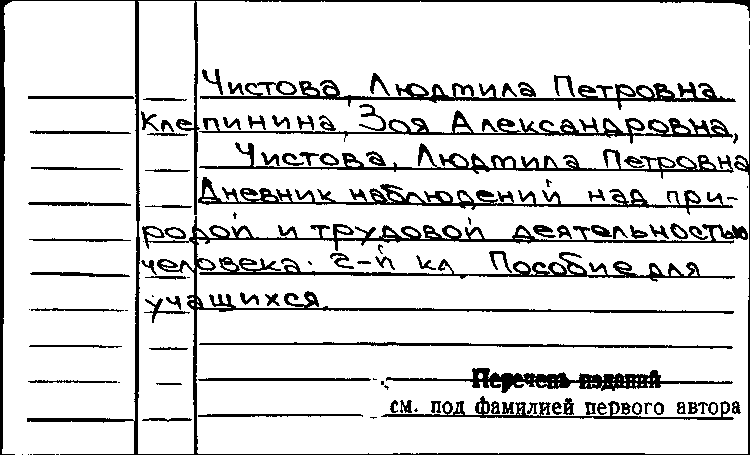 Чистова, Людмила Петровна.
Клепинина, Зоя Александровна,
Чистова, Людмила Петровна
Дневник наблюдений над при-
родой и трудовой деятельностью
человека. 2-й кл. Пособие для
учащихся.
Перечень изданий
см. под фамилией первого автора